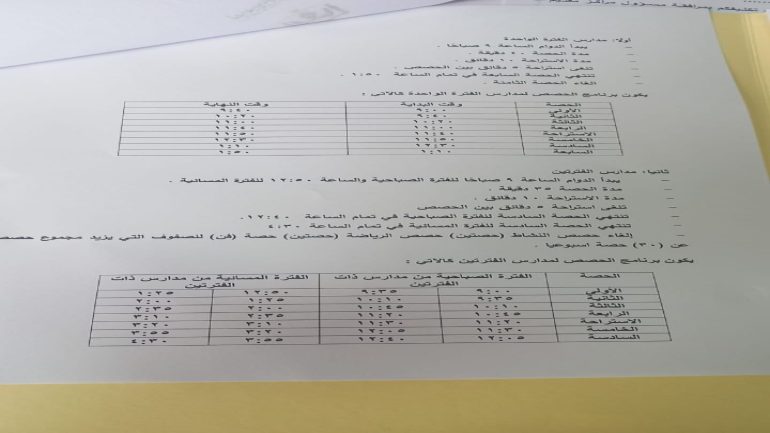 تكليفكم بمرافقة مسؤول مراكز
أولا: مدارس الفترة الواحدة
– يبدأ الدوام الساعة ٩ صباحا .
– مدة الحصة ٤٠ دقيقة .
– مدة الاستراحة ١٠ دقائق .
– تلغى استراحة ٥ دقائق بين الحصص .
– تنتهي الحصة السابعة في تمام الساعة ١:٥٠ .
– الغاء الحصة الثامنة .
يكون برنامج الحصص لمدارس الفترة الواحدة كالآتي :
الحصة وقت البداية وقت النهاية
الأولى ٩:٠٠ ٩:٤٠
الثانية ٩:٤٠ ١٠:٢٠
الثالثة ١٠:٢٠ ١١:٠٠
الرابعة ١١:٠٠ ١١:٤٠
الاستراحة ١١:٤٠ ١١:٥٠
الخامسة ١١:٥٠ ١٢:٣٠
السادسة ١٢:٣٠ ١:١٠
السابعة ١:١٠ ١:٥٠
ثانيا: مدارس الفترتين
– يبدأ الدوام الساعة ٩ صباحا للفترة الصباحية والساعة ١٢:٥٠ للفترة المسائية .
– مدة الحصة ٣٥ دقيقة .
– مدة الاستراحة ١٠ دقائق .
– تلغى استراحة ٥ دقائق بين الحصص
– تنتهي الحصة السادسة للفترة الصباحية في تمام الساعة ١٢:٤٠.
– تنتهي الحصة السادسة للفترة المسائية في تمام الساعة ٤:٣٠
– إلغاء حصص النشاط (حصتين) حصص الرياضة (حصتين) حصة (فن) للصفوف التي يزيد مجموع حصصها
عن (٣٠) حصة اسبوعيا .
يكون برنامج الحصص لمدارس الفترتين كالاتي :
الحصة الفترة الصباحية من مدارس ذات الفترتين الفترة المسائية من مدارس ذات الفترتين
الأولى ٩:٠٠ ٩:٣٥ ١٢:٥٠ ١:٢٥
الثانية ٩:٣٥ ١٠:١٠ ١:٢٥ ٢:٠٠
الثالثة ١٠:١٠ ١٠:٤٥ ٢:٠٠ ٢:٣٥
الرابعة ١٠:٤٥ ١١:٢٠ ٢:٣٥ ٣:١٠
الاستراحة ١١:٢٠ ١١:٣٠ ٣:١٠ ٣:٢٠
الخامسة ١١:٣٠ ١٢:٠٥ ٣:٢٠ ٣:٥٥
السادسة ١٢:٠٥ ١٢:٤٠ ٣:٥٥ ٤:٣٠